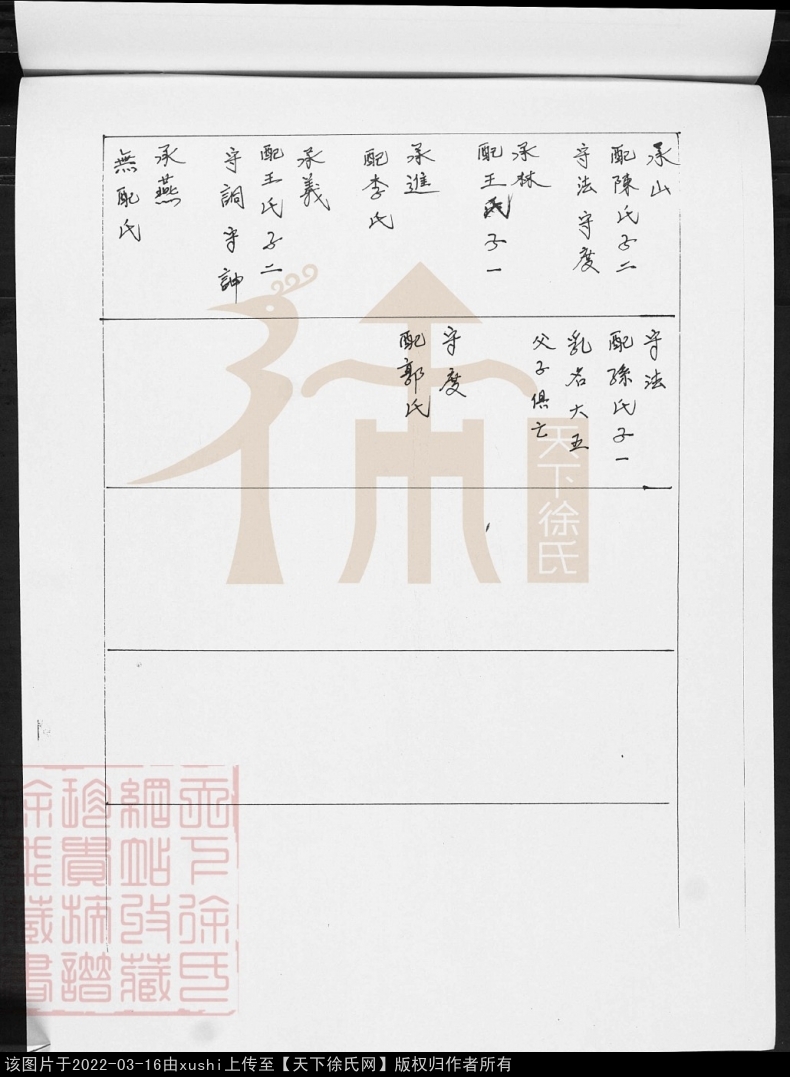 承山
配陳氏子二
守法守度
承林
配王氏子一
承進
配李氏
承義
配王氏子二
守詞守訷
承燕
無配氏
守法
配孫氏子一
乳名大五
父子俱亡
守度
配郭氏
天下徐氏
天下徐氏
網站收藏
珍貴
藏書
该图片于2022-03-16由xushi上传至【天下徐氏网】版权归作者所有